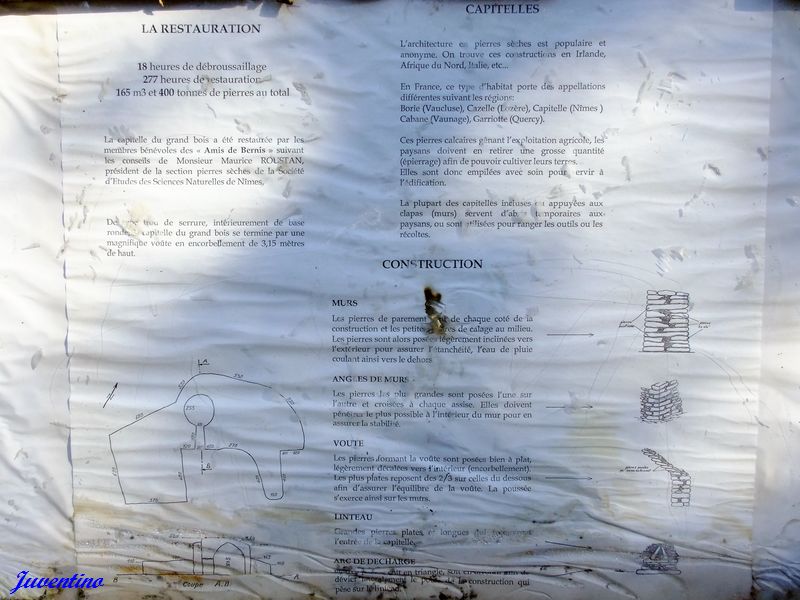 LA RESTAURATION
18 heures de débroussaillage
277 heures de restauration
165 m3 et 400 tonnes de pierres au total
La capitelle du grand bois a été restaurée par les
membres bénévoles des « Amis de Bernis » suivant
les conseils de Monsieur Maurice ROUSTAN,
président de la section pierres sèches de la Société
d'Etudes des Sciences Naturelles de Nîmes,
trou de serrure, intérieurement de base
ronde, capitelle du grand bois se termine par une
magnifique voûte en encorbellement de 3,15 mètres
de haut.
CAPITELLES
L'architecture en pierres sèches est populaire et
anonyme. On trouve ces constructions en Irlande,
Afrique du Nord, Italie, etc...
En France, ce type d'habitat porte des appellations
différentes suivant les régions:
Borie (Vaucluse), Cazelle (Lozère), Capitelle (Nîmes )
Cabane (Vaunage), Garriotte (Quercy).
Ces pierres calcaires gênant l'exploitation agricole, les
paysans doivent en retirer une grosse quantité
(épierrage) afin de pouvoir cultiver leurs terres.
Elles sont donc empilées avec soin pour servir à
l'édification.
La plupart des capitelles incluses ou appuyées aux
clapas (murs) servent d'abri temporaires aux
paysans, ou sont utilisées pour ranger les outils ou les
récoltes.
CONSTRUCTION
MURS
Les pierres de parement sont de chaque coté de la
construction et les petites pierres de calage au milieu.
Les pierres sont alors posées légèrement inclinées vers
l'extérieur pour assurer l'étanchéité, l'eau de pluie
coulant ainsi vers le dehors
ANGLES DE MURS
Les pierres les plus grandes sont posées l'une sur
l'autre et croisées à chaque assise. Elles doivent
pénétrer le plus possible à l'intérieur du mur pour en
assurer la stabilité.
VOUTE
Les pierres formant la voûte sont posées bien à plat,
légèrement décalées vers l'intérieur (encorbellement).
Les plus plates reposent des 2/3 sur celles du dessous
afin d'assurer l'équilibre de la voûte. La poussée
s'exerce ainsi sur les murs.
LINTEAU
Grandes pierres plates et longues qui
l'entrée de la capitelle.
ARC DE DECHARGE
en triangle, son
dévier le de la construction qui
pèse sur le linteau.
A
255
B
270
B
Coupe A.B
A
Juventino